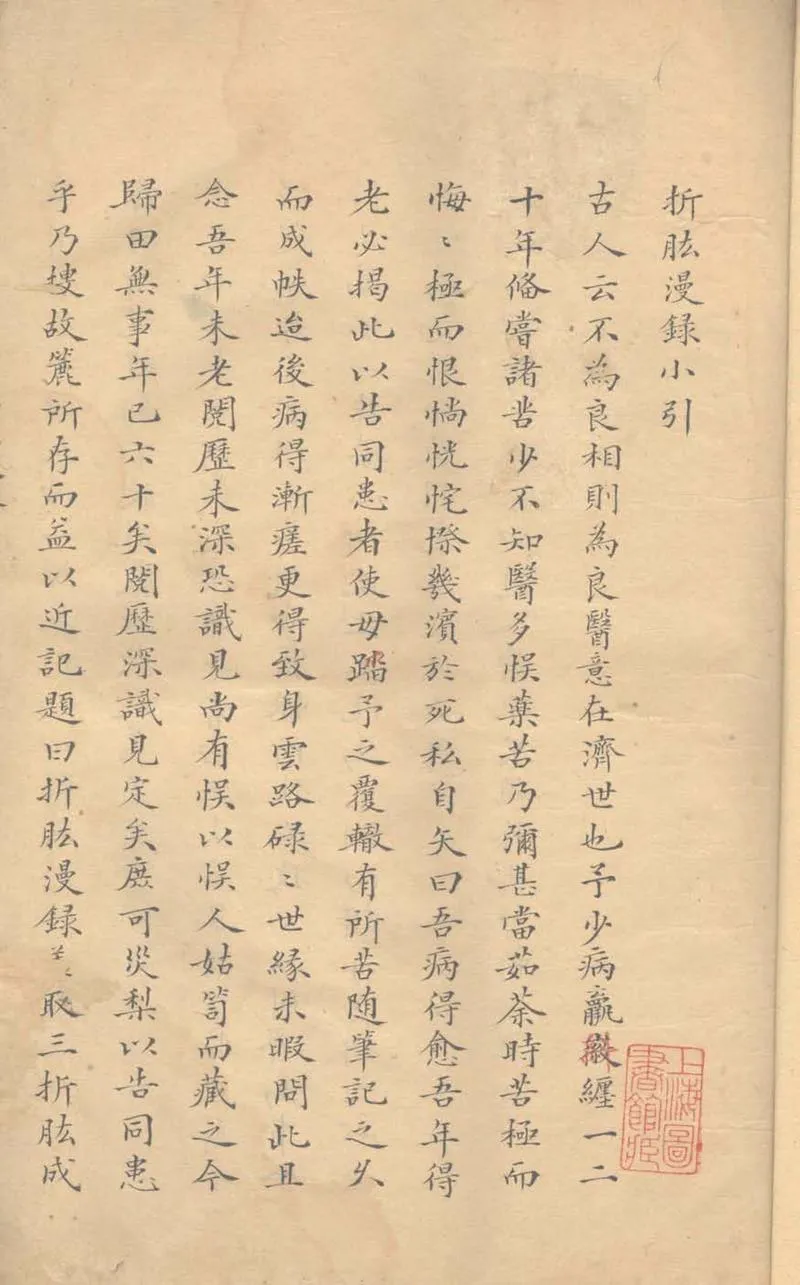 折肱漫録小引
古人云不為良相則為良醫意在濟世也予少病羸纏一二
十年俻嘗諸甞少不知醫多悮藥苦乃彌甚當茹荼時苦極而
悔〻極而恨惝恍㤞傺幾濱於死私自矢曰吾病得愈吾年得
老必揭此以告同患者使毋蹈予之覆轍有所苦随筆記之乆
而成帙迨後病得漸瘥更得致身雲路碌〻世緣未暇問此且
念吾年未老閱歷未深恐識見尚有悮以悮人姑笥而藏之今
歸田無事年已六十矣閱歷深識見定矣庶可災梨以告同患
乎乃摟故簏所存而益以近記題曰折肱漫録盖取三折肱成
上海圖書館藏